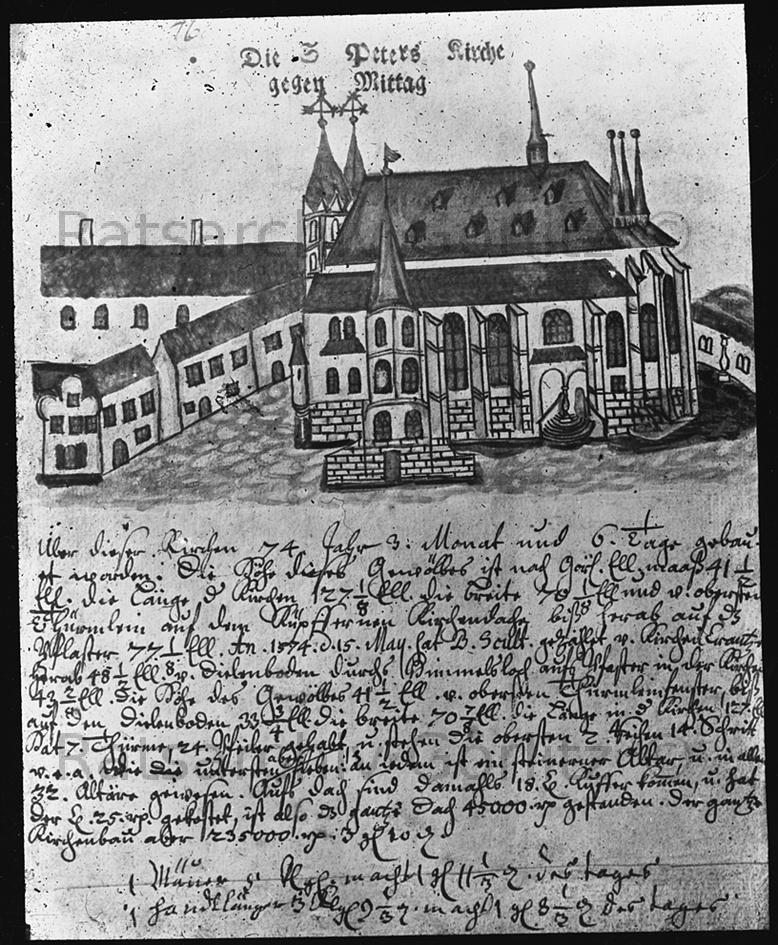 76
Die S Peters Kirche
gegen Mittag
Ratsarchiv Görlitz ©
Über dieser Kirchen 74. Jahr 3. Monat und 6. Tage gebau-
et worden. Die Höhe dieses Gewölbes ist nach Görl. Ell. maaß 41 1/2
Ell. die Länge d Kirchen 127 1/8 Ell. die breite 70 Ell und v. obersten
Thürmlein auf dem Kupffernen Kirchendache biß herab auf ds
Pflaster 77 1/2 Ell. An. 1574. d. 15. May. hat B. Scult. v. Kirchen
herab 48 1/2 Ell. v. dielenboden durchs Himmelsloch aufs Pflaster in der Kirchen
43 Ell. die Höhe des Gewölbes 41 1/2 Ell. v. obersten Thürmleinfenster biß
auf den dielenboden 33 3/4 Ell. die breite 70 Ell. die Länge in d Kirchen 127. Ell
Hat 7. Thürme, 24. Pfeiler gehabt, u. stehen die obersten 2 14. Schritt
v. e. a. die untersten sieben. An iedem ist ein steinerner Altar, u. in allen
32. Altäre gewesen. Aufs Dach sind damahls 18. Kuffer kommen, u. hat
der 25. rp. gekostet, ist also ds gantze Dach 45000. rp gestanden. der gantze
Kirchenbau aber 235000. rp. 3 gl 10
1 Mäuer macht 1 gl 11 1/3 des tages
1 handlänger macht 1 gl 8 1/3 des tages
Ratsarchiv Görlitz